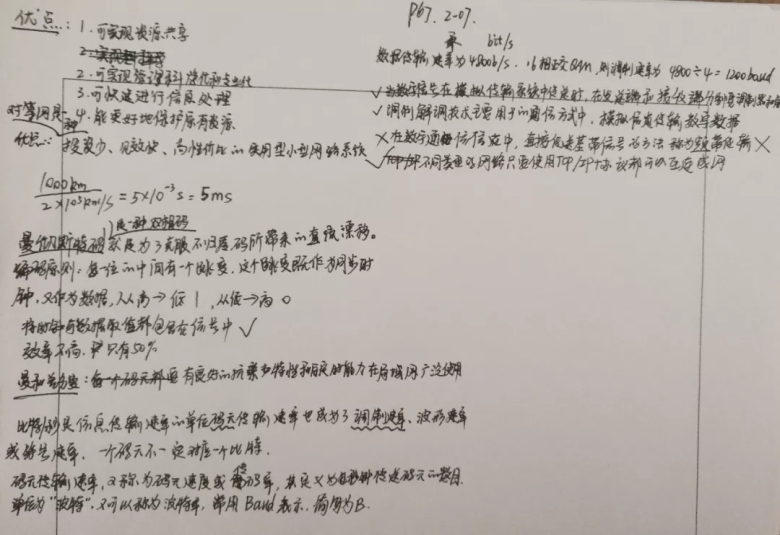 优点: 1. 可实现资源共享
2. 可实现管理科学化和专业化
3. 可快速进行信息处理
4. 能更好地保护原有资源
对等网是一种
投资少、见效快、高性价比的实用型小型网络系统
优点:
1000km / 2×10⁵km/s = 5×10⁻³s = 5ms
是一种双相码
曼彻斯特编码就是为了克服不归零码所带来的直流漂移。
编码原则:每一位的中间有一个跳变,这个跳变既作为同步时
钟,又作为数据,从高→低 1,从低→高 0
将时钟和数据取值都包含在信号中 ✓
效率不高,只有50%
曼和差分曼:每一个码元都要有良好的抗干扰特性和同步的能力在局域网广泛使用
比特/秒是信息传输速率的单位码元传输速率也成为了调制速率、波形速率
或符号速率,一个码元不一定对应一个比特。
码元传输速率,又称为码元速度或码率,其定义为每秒钟传送码元的数目.
单位为"波特",又可以称为波特率,常用Baud表示,简写为B.
P67. 2-07.
bit/s
数据传输速率为4800b/s. 16相正交QAM,则调制速率为 4800÷4=1200baud
✓ 当数字信号在模拟传输系统中传送时,在发送端和接收端分别需调制器和解
✓ 调制解调技术主要用于的通信方式中,模拟信道传输数字数据
× 在数字通信信道中,直接传送基带信号的方法称为频带传输 ×
✓ 不同类型的网络只要使用TCP/IP协议都可以互连成网